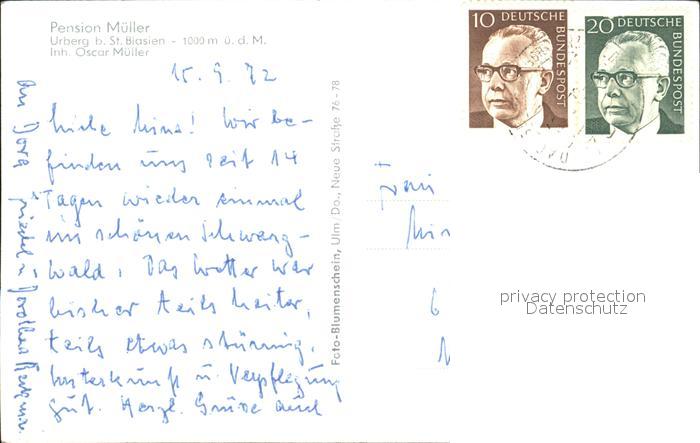 Pension Müller
Urberg b. St. Blasien - 1000 m ü. d. M.
Inh. Oscar Müller
15. 9. 72
Liebe Mina! Wir be-
finden uns seit 14
Tagen wieder einmal
im schönen Schwarz-
wald. Das Wetter war
bisher teils heiter,
teils etwas stürmig.
Unterkunft u. Verpflegung
gut. Herzl. Grüsse auch
an Dora
Friedel u. Dorothea
Foto-Blumenschein, Ulm/Do., Neue Straße 76-78
10 DEUTSCHE
BUNDESPOST
20 DEUTSCHE
BUNDESPOST
Frau
6
privacy protection
Datenschutz